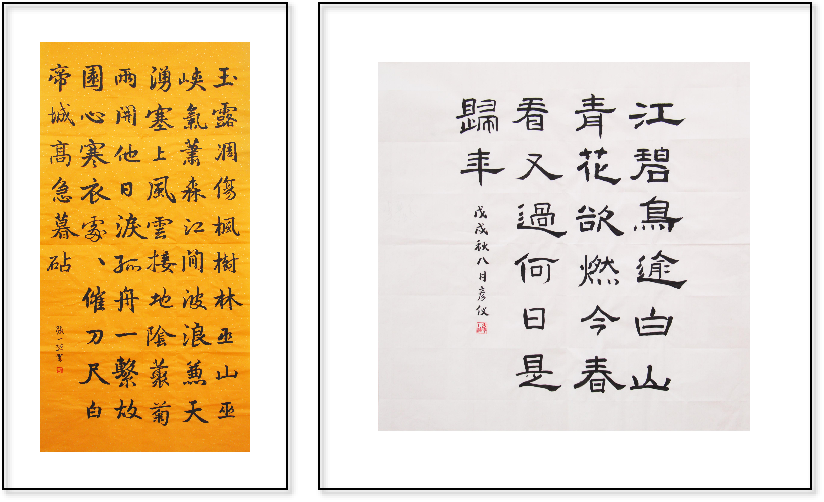 玉露凋傷楓樹林巫山巫
峽氣蕭森江間波浪兼天
湧塞上風雲接地陰叢菊
兩開他日淚孤舟一繫故
園心寒衣處、催刀尺白
帝城高急暮砧
江碧鳥途白山
青花欲燃今春
看又過何日是
歸年
戊戌秋八月彦仪